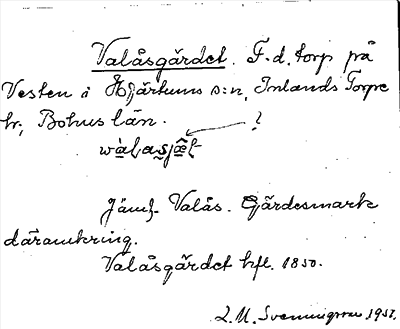 Valåsgärdet. F.d. torp på
Vesten i Hjärtums s:n, Inlands Torpe
hr, Bohus län.
?
wàlasjæ̂ḷt
Jämf. Valås. Gärdesmark
däromkring.
Valåsgärdet hfl. 1850.
L.M. Svenningsson 1951.